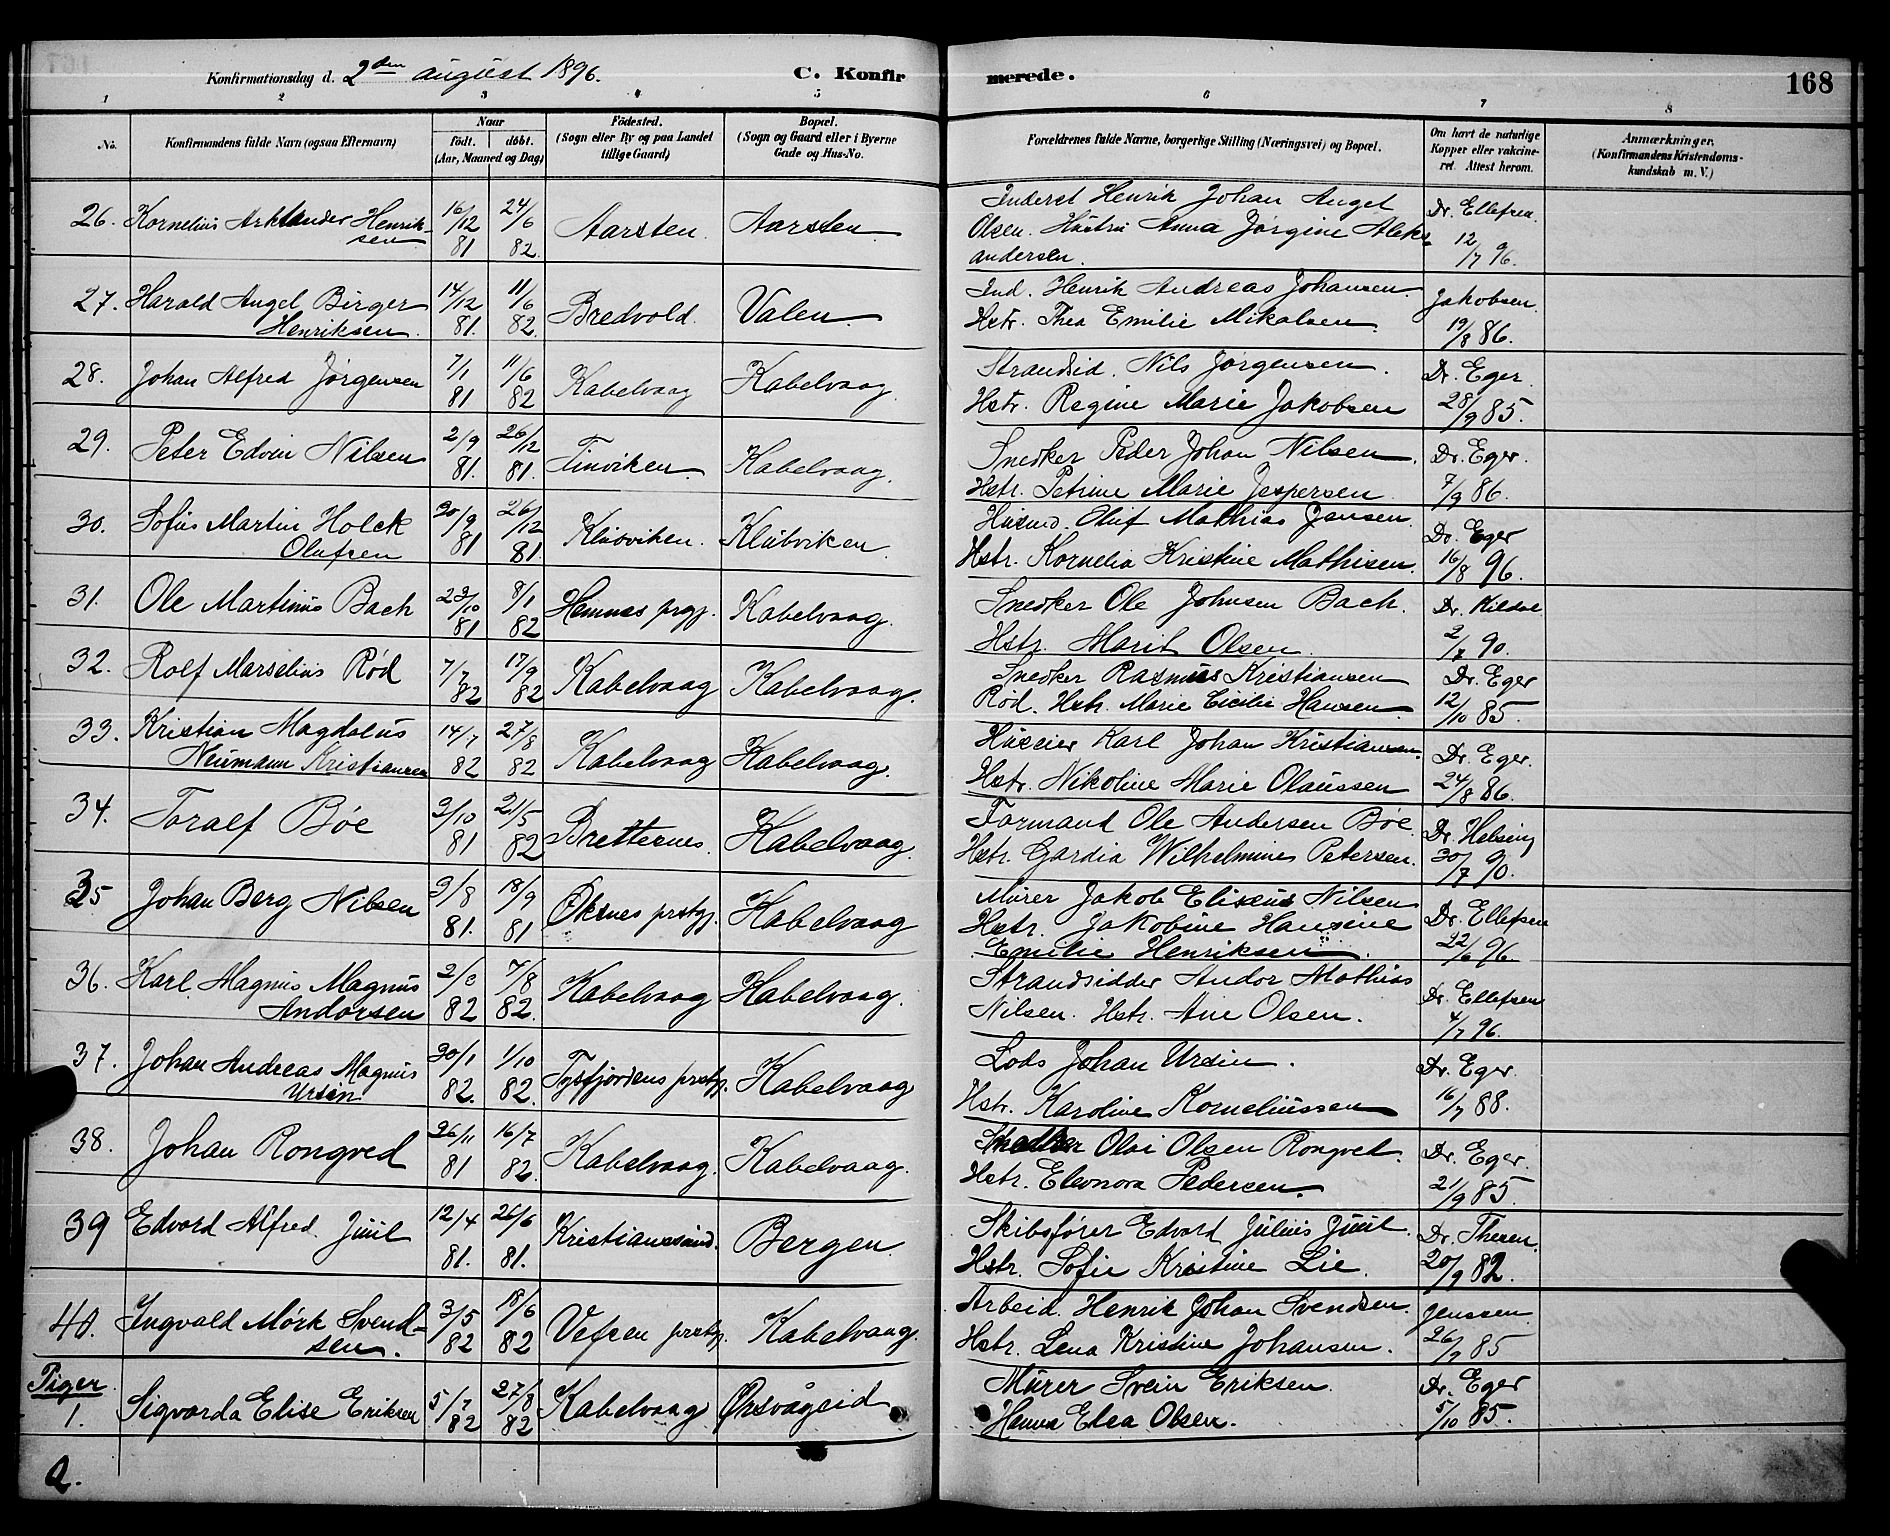 Konfirmationsdag d. 2den august 1896.
C. Konfirmerede.
168
1 2 3 4 5 6 7 8
No.
Konfirmandens fulde Navn (ogsaa Efternavn)
Naar
født. døbt.
(Aar, Maaned og Dag)
Fødested.
(Sogn eller By og paa Landet
tillige Gaard)
Bopæl.
(Sogn og Gaard eller i Byerne
Gade og Hus-No.
Forældrenes fulde Navne, borgerlige Stilling (Næringsvei) og Bopæl.
Om havt de naturlige
Kopper eller vakcine-
ret. Attest herom.
Anmærkninger.
(Konfirmandens Kristendoms-
kundskab m. V.)
26. Kornelius Henrik-
sen
16/12 81 24/6 82 Aarsten. Aarsten
Inderst Henrik Johan Angel
Olsen. Hustru Anna Jørgine Aleks-
andersen.
Dr. Ellefsen 12/7 96.
27. Harald Angel Birger
Henriksen.
14/12 81. 11/6 82 Bredvold. Valen.
Ind. Henrik Andreas Johansen.
Hstr. Thea Emilie Mikalsen
Jakobsen 19/8 86.
28. Johan Alfred Jørgensen
7/1 81 11/6 82 Kabelvaag Kabelvaag
Strandsid. Nils Jørgensen.
Hstr. Regine Marie Jakobsen
Dr. Eger. 28/9 85.
29. Peter Edvin Nilsen
2/9 81. 26/12 81. Finviken. Kabelvaag.
Snedker Peder Johan Nilsen.
Hstr. Petrine Marie Jespersen
Dr. Eger. 7/9 86.
30. Sofus Martin Holck
Olufsen
30/9 81 26/12 81 Klubviken. Klubviken.
Husmd. Oluf Mathias Jensen.
Hstr. Kornelia Kristine Mathisen.
Dr. Eger 16/8 96.
31. Ole Martinus Bach
23/10 81 8/1 82 Hemnes prgj. Kabelvaag.
Snedker Ole Johnsen Bach.
Hstr. Marit Olsen.
Dr. Kildal 2/7 90.
32. Rolf Marselius Rød
7/7 82 17/9 82 Kabelvaag Kabelvaag.
Snedker Rasmus Kristiansen
Rød. Hstr. Marie Cicilie Hansen
Dr. Eger 12/10 85.
33. Kristian Magdalus
Neumann Kristiansen
14/7 82 27/8 82 Kabelvaag Kabelvaag.
Karl Johan Kristiansen.
Hstr. Nikoline Marie Olaussen
Dr. Eger. 24/8 86.
34. Toralf Bøe
3/10 81 21/5 82 Brettesnes. Kabelvaag.
Formand Ole Andersen Bøe.
Hstr. Gardia Wilhelmine Petersen.
Dr. Helsing 30/7 90.
35 Johan Berg Nilsen
3/8 81. 18/9 81 Øksnes prstgj. Kabelvaag
Murer Jakob Eliseus Nilsen
Hstr. Jakobine Hansine
Emilie Henriksen.
Dr. Ellefsen 22/6 96.
36. Karl Magnus Magnus
Andorsen
82 7/8 82. Kabelvaag Kabelvaag.
Strandsidder Andor Mathias
Nilsen. Hstr. Ane Olsen.
Dr. Ellefsen 4/7 96.
37. Johan Andreas Magnus
Ursin
30/1 82. 1/10 82. Tysfjordens prstgj. Kabelvaag
Lods Johan Ursin.
Hstr. Karoline Korneliussen
Dr. Eger. 16/7 88.
38. Johan Rongved
26/11 81 16/7 82. Kabelvaag. Kabelvaag.
Snedker Olai Olsen Rongved.
Hstr. Eleonora Pedersen.
Dr. Eger. 21/9 85.
39 Edvard Alfred Juul
12/4 81. 26/6 81. Kristianssund. Bergen
Skibsfører Edvard Julius Juul.
Hstr. Sofie Kristine Lie.
Dr. Thesen. 20/9 82.
40. Ingvald Mørk Svend-
sen.
3/5 82 18/6 82 Vefsen prstgj. Kabelvaag.
Arbeid. Henrik Johan Svendsen.
Hstr. Lena Kristine Johansen.
Jenssen 26/9 85
Piger.
1. Sigvarda Elise Eriksen
5/7 82 27/8 82 Kabelvaag Ørsvågeid
Murer Svein Eriksen.
Hanna Elea Olsen.
Dr. Eger 5/10 85.
2.